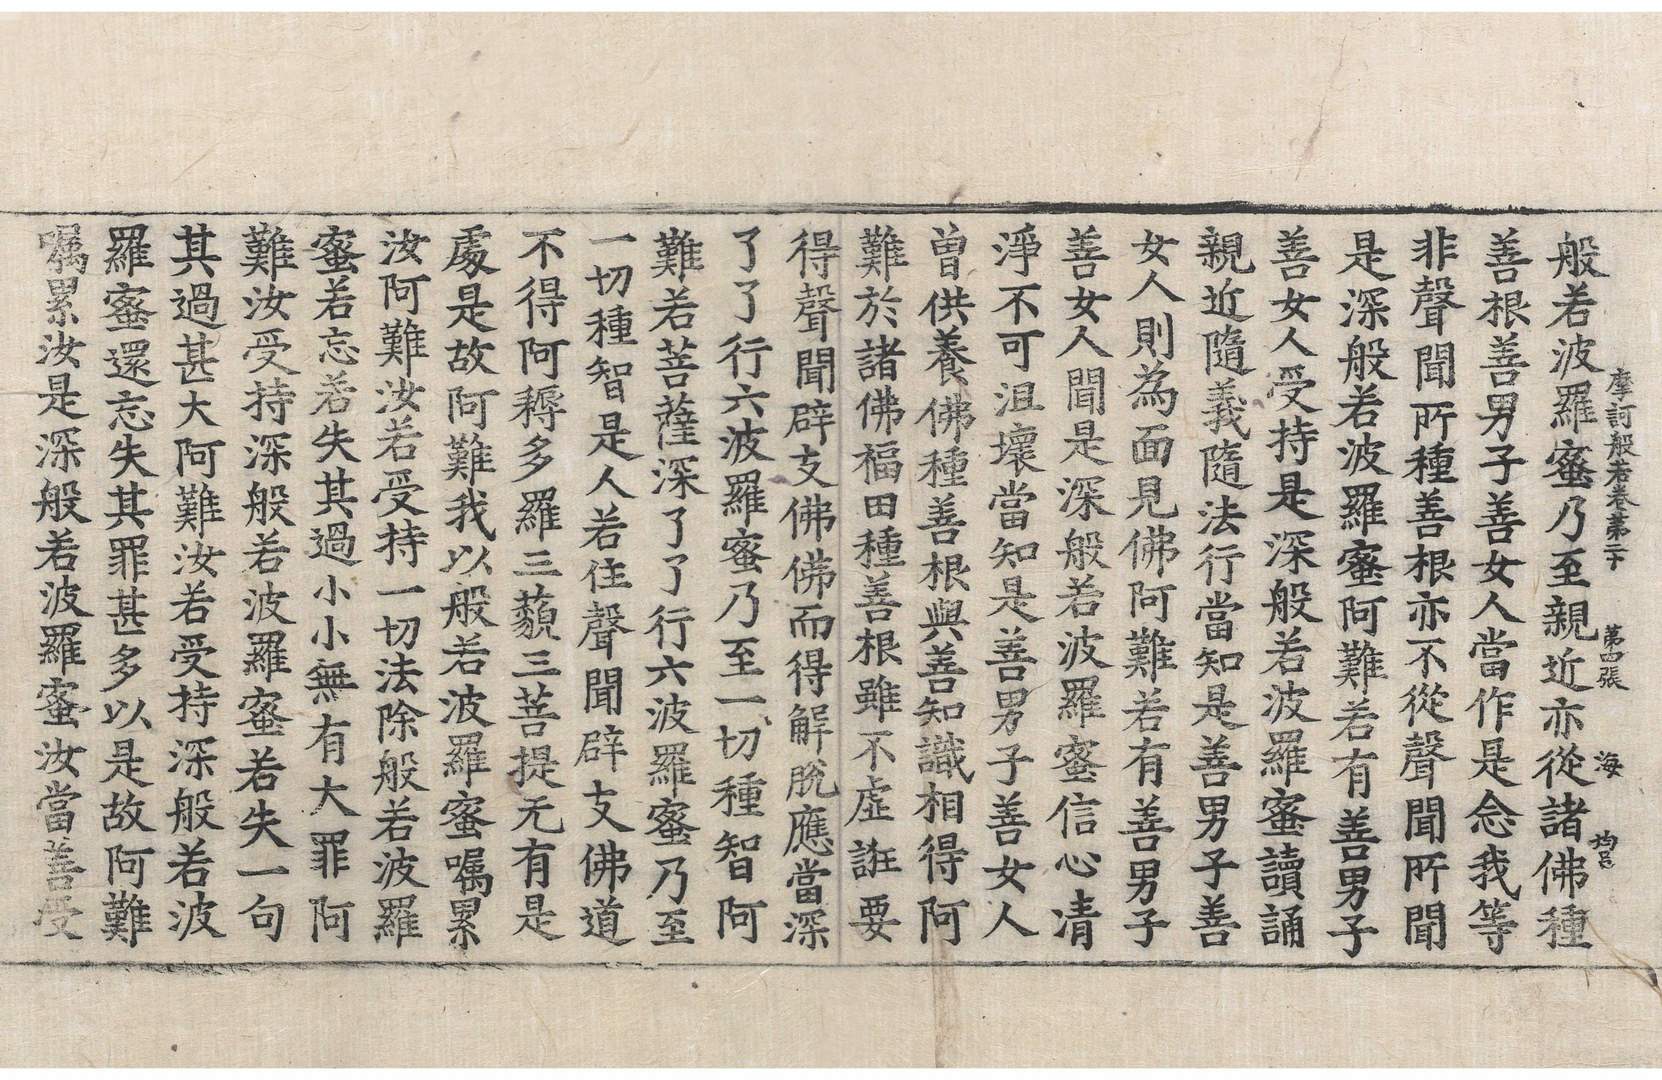 摩訶般若卷第二十 第四張 海
般若波羅蜜乃至親近亦從諸佛種
善根善男子善女人當作是念我等
非聲聞所種善根亦不從聲聞所聞
是深般若波羅蜜阿難若有善男子
善女人受持是深般若波羅蜜讀誦
親近隨義隨法行當知是善男子善
女人則為面見佛阿難若有善男子
善女人聞是深般若波羅蜜信心清
淨不可沮壞當知是善男子善女人
曾供養佛種善根與善知識相得阿
難於諸佛福田種善根雖不虛誑要
得聲聞辟支佛佛而得解脫應當深
了了行六波羅蜜乃至一切種智阿
難若菩薩深了了行六波羅蜜乃至
一切種智是人若住聲聞辟支佛道
不得阿耨多羅三藐三菩提无有是
處是故阿難我以般若波羅蜜囑累
汝阿難汝若受持一切法除般若波羅
蜜若忘若失其過小小無有大罪阿
難汝受持深般若波羅蜜若失一句
其過甚大阿難汝若受持深般若波
羅蜜還忘失其罪甚多以是故阿難
囑累汝是深般若波羅蜜汝當善受